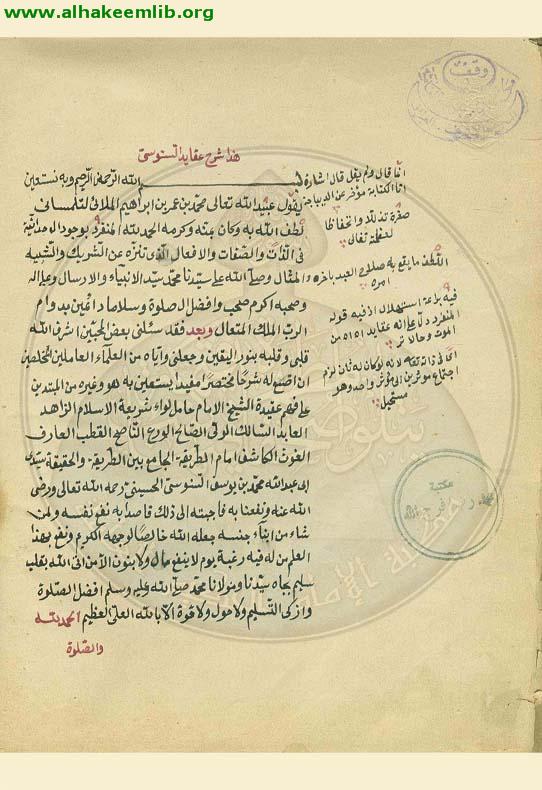 www.alhakeemlib.org
وقف
هذا شرح عقايد السنوسي
بسم الله الرحمن الرحيم وبه نستعين
يقول عبيد الله تعالى محمد بن عمر بن ابراهيم الملالى التلمسانى
لطف الله به وكان بمنه وكرمه الحمد لله المنفرد بوجود الوحدانية
فى الذات والصفات والافعال الذى تنزه عن الشريك والشبيه
والمثال وصلى الله على سيدنا محمد سيد الانبياء والارسال وعلى اله
وصحبه اكرم صحب وافضل ال صلوة وسلاما دائمين بدوام
الرب الملك المتعال وبعد فقد سئلنى بعض المحبين اشرق الله
قلبى وقلبه بنور اليقين وجعلنى واياه من العلماء العاملين المخلصين
ان اضع له شرحا مختصرا مفيدا يستعين به هو وغيره من المبتدين
على فهم عقيدة الشيخ الامام حامل لواء شريعة الاسلام الزاهد
العابد السالك الولى الصالح الورع الناصح القطب العارف
الغوث الكاشف امام الطريقة الجامع بين الطريقة والحقيقة سيدى
ابى عبدالله محمد بن يوسف السنوسى الحسينى رحمه الله تعالى ورضى
الله عنه ونفعنا به فاجبته الى ذلك قاصدا به نفع نفسه ولمن
شاء من ابناء جنسه جعله الله خالصا لوجهه الكريم ونفع بهذا
العلم من له فيه رغبة يوم لا ينفع مال ولا بنون الا من اتى الله بقلب
سليم بجاه سيدنا ومولانا محمد صلى الله عليه وسلم افضل الصلوة
وازكى التسليم ولا حول ولا قوة الا بالله العلى العظيم الحمد لله
والصلوة
انما قال ولم يقل قال اشارة
ان الكتابة مؤخر عن الديباجة
صغره تذللا وانخفاظا
لعظمة تعالى
اللطف ما يقع به صلاح العبد باخره
امره
فيه براعة استهلال اذ فيه قوله
المنفرد دل على انه عقايد
اى فى ذاته تعالى لانه لو كان له ثان لزم
اجتماع موثرين على موثر واحد وهو
مستحيل
مكتبة